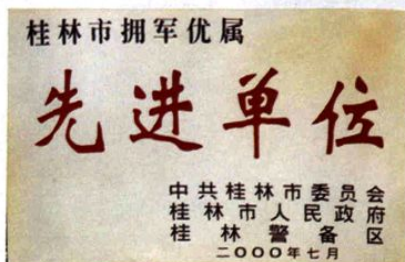 桂林市拥军优属
先进单位
中共桂林市委员会
桂林市人民政府
桂林警备区
二〇〇〇年七月